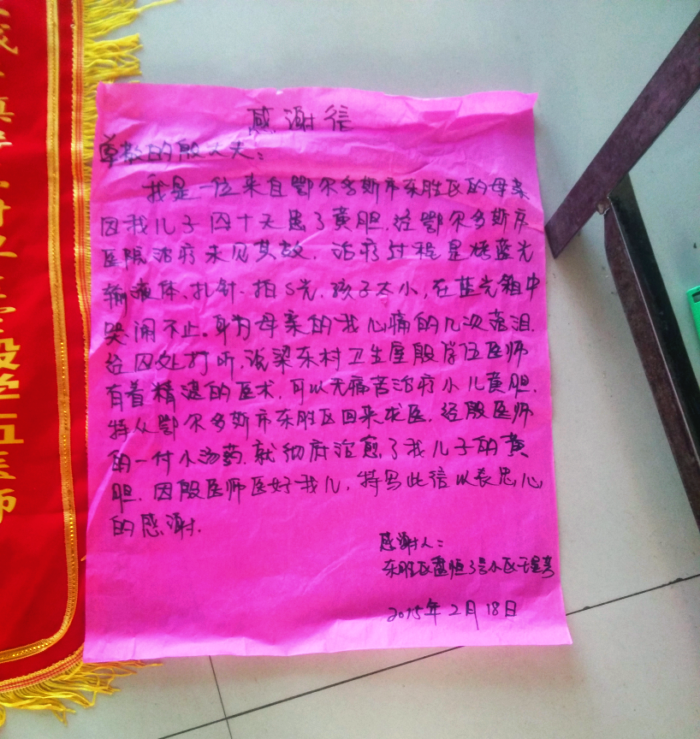 感谢信
尊敬的殷大夫:
我是一位来自鄂尔多斯市东胜区的母亲
因我儿子四十天患了黄胆.经鄂尔多斯市
医院治疗未见其效.治疗过程是烤蓝光
输液体、扎针.拍S光.孩子太小,在蓝光箱中
哭闹不止。身为母亲的我心痛的几次落泪.
经四处打听,张梁东村卫生屋殷学伍医师
有着精湛的医术.可以无痛苦治疗小儿黄胆.
特从鄂尔多斯市东胜区回来求医.经殷医师
的一付小汤药.就彻底治愈了我儿子的黄
胆.因殷医师医好我儿.特写此信以表忠心
的感谢.
感谢人:
东胜区 恒 号小区
2015年2月18日
医师